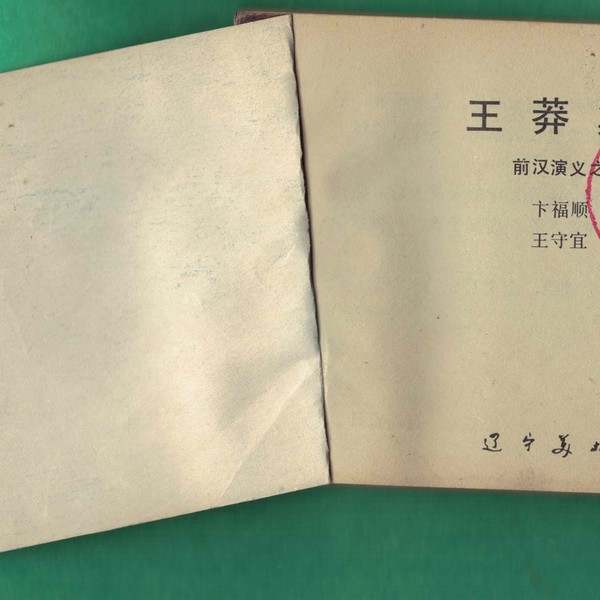 王莽
前汉演义之
卞福顺
王守宜
辽宁美